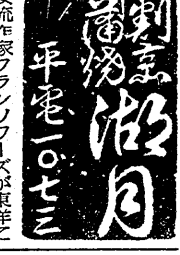 割烹
蒲焼
湖月
平電一〇七三
流作家フランソワーズが東洋